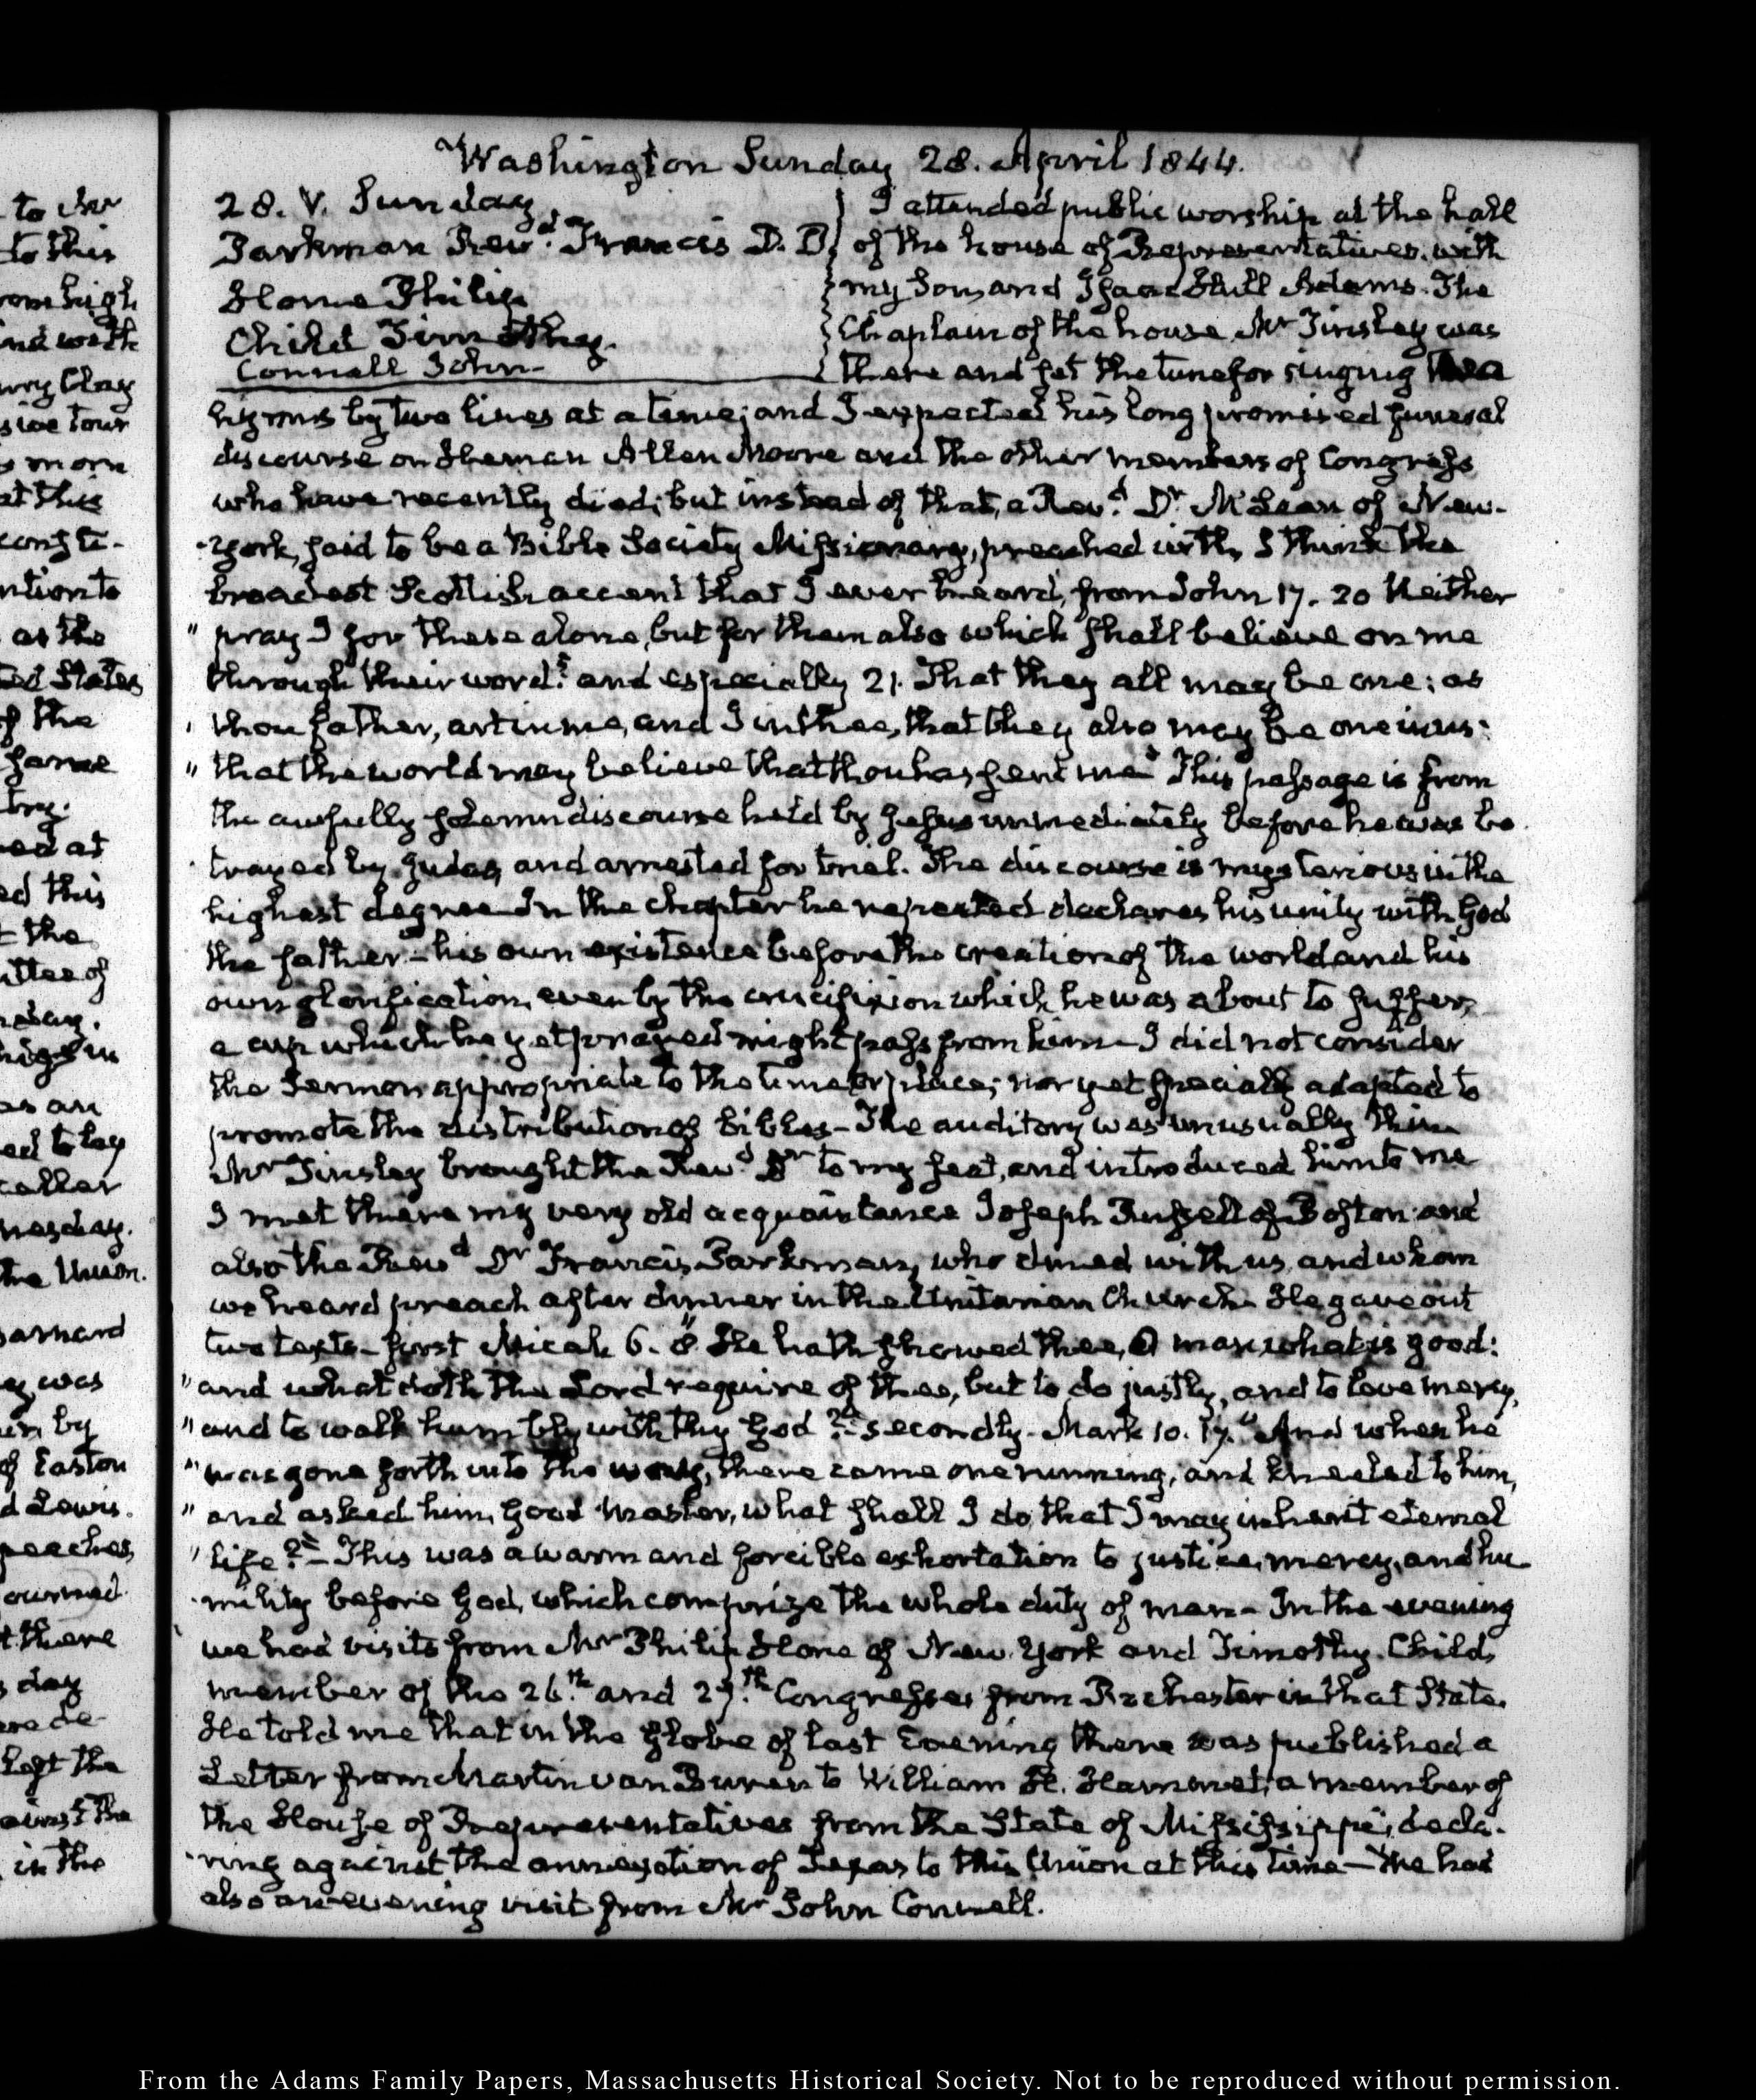 Washington Sunday 28. April 1844.
28. V. Sunday.
Parkman Revd. Francis D. D.
Hone Philip
Child Timothy.
Connell John
I attended public worship at the hall
of the house of Representatives, with
my Son, and Isaac Hull Adams. The
Chaplain of the house Mr Tinsley was
there and set the tune for singing the
hymns by two lines at a time; and I expected his long promised funeral
discourse on Heman Allen Moore and the other members of Congress
who have recently died; but instead of that, a Revd. Dr McLean of New-
-York, said to be a Bible Society Missionary, preached with, I think the
broadest Scottish accent that I ever heard, from John 17. 20 Neither
" pray I for these alone, but for them also which shall believe on me
through their word." and especially 21. That they all may be one; as
' thou father, art in me, and I in thee, that they also may be one in us:
" that the world may believe that thou has sent me" This passage is from
the awfully solemn discourse held by Jesus immediately before he was be
-trayed by Judas, and arrested for trial. The discourse is mysterious in the
highest degree In the chapter he repeated declares his unity with God
the father—his own existence before the creation of the world and his
own glorification, even by the crucifixion which he was about to suffer,
a cup which he yet prayed might pass from him—I did not consider
the Sermon appropriate to the time or place; nor yet specially adapted to
promote the distribution of bibles—The auditory was unusually thin
Mr Tinsley brought the Revd Dr to my seat, and introduced him to me
I met there my very old acquaintance Joseph Russell of Boston and
also the Revd Dr Francis Parkman, who dined with us, and whom
we heard preach after dinner in the Unitarian Church. He gave out
two texts—first Micah 6. 8 "He hath showed thee, O man what is good:
" and what doth the Lord require of thee, but to do justly, and to love mercy,
" and to walk humbly with thy God?"—secondly—Mark 10. 17. "And when he
" was gone forth into the way, there came one running, and kneeled to him,
" and asked him, Good Master, what shall I do that I may inherit eternal
" life?"—This was a warm and forcible exhortation to justice, mercy, and hu
-mility before God, which comprize the whole duty of man—In the evening
we had visits from Mr Philip Hone of New York and Timothy Child,
member of the 26th. and 27th. Congresses from Rochester in that State.
He told me that in the Globe of last Evening there was published a
Letter from Martin van Buren to William H. Hammet, a member of
the House of Representatives from the State of Mississippi, decla-
-ring against the annexation of Texas to this Union at this time—We had
also an evening visit from Mr John Connell.
From the Adams Family Papers, Massachusetts Historical Society. Not to be reproduced without permission.